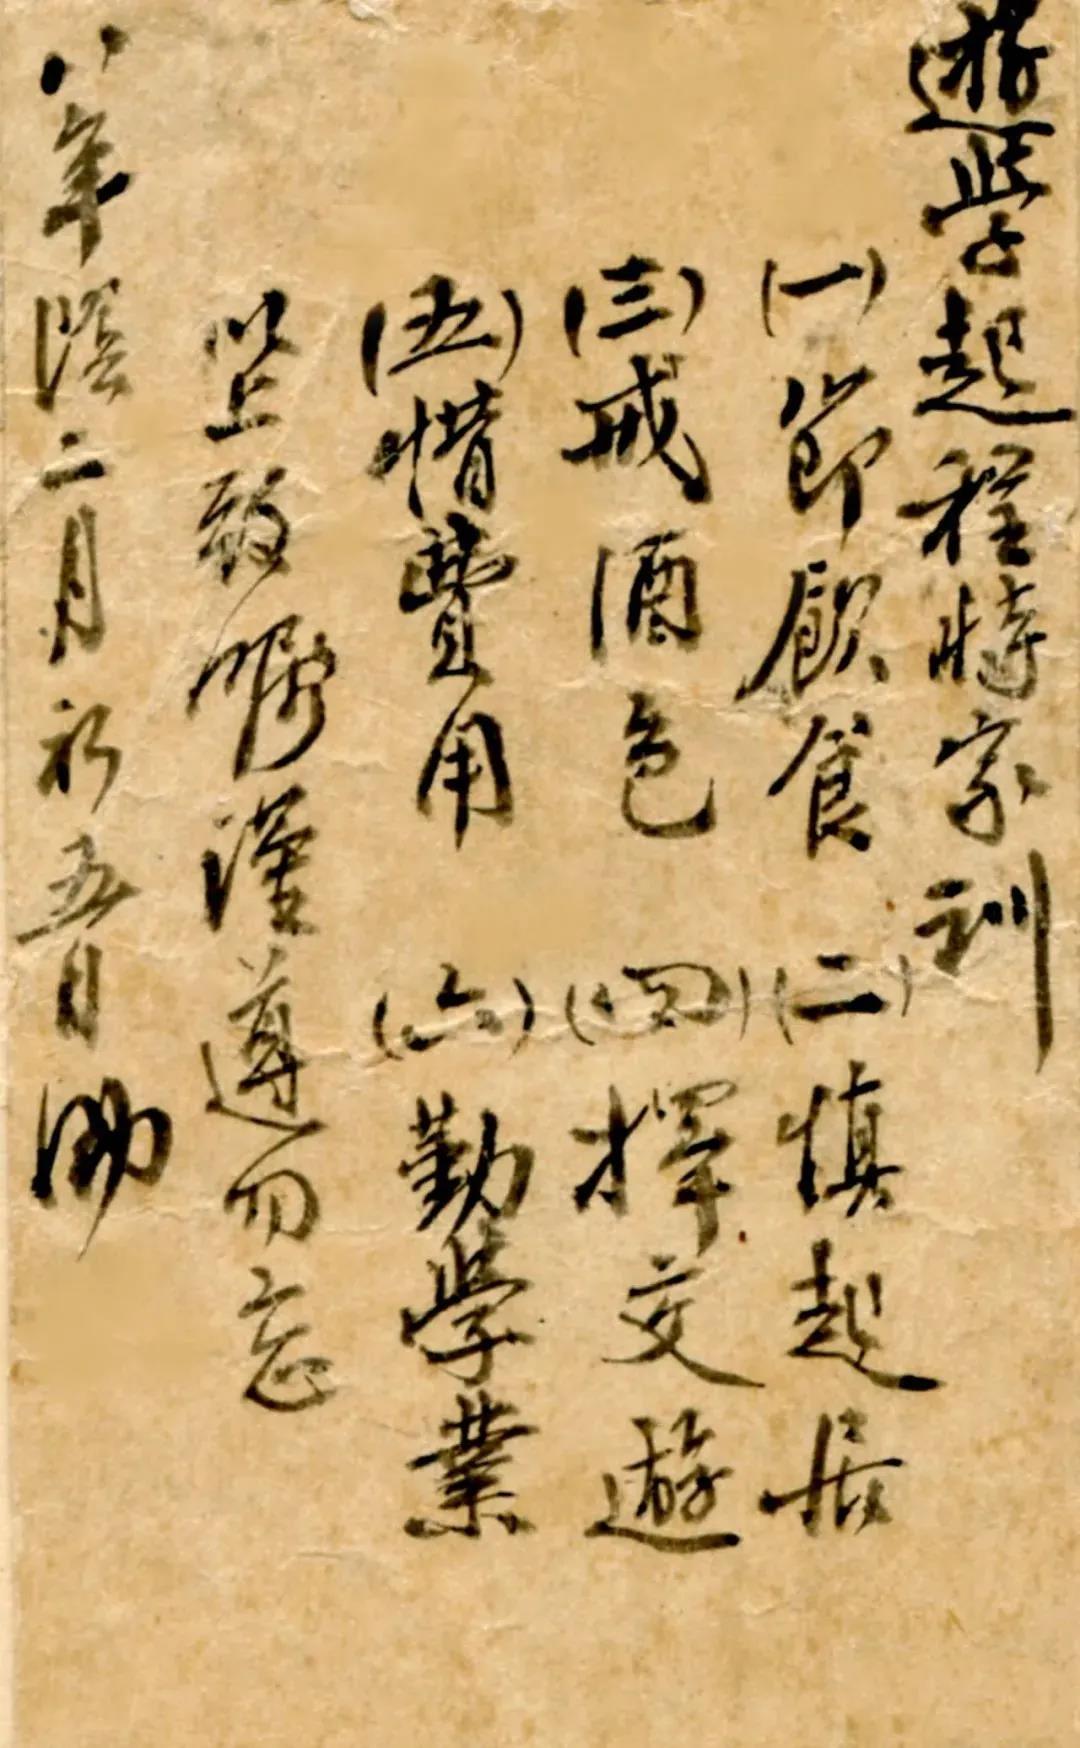 遊學起程時家訓
(一)節飲食 (二)慎起居
(三)戒酒色 (四)擇交遊
(五)惜費用 (六)勤學業
以上敬嘱謹遵勿忘
八年陰二月初五日